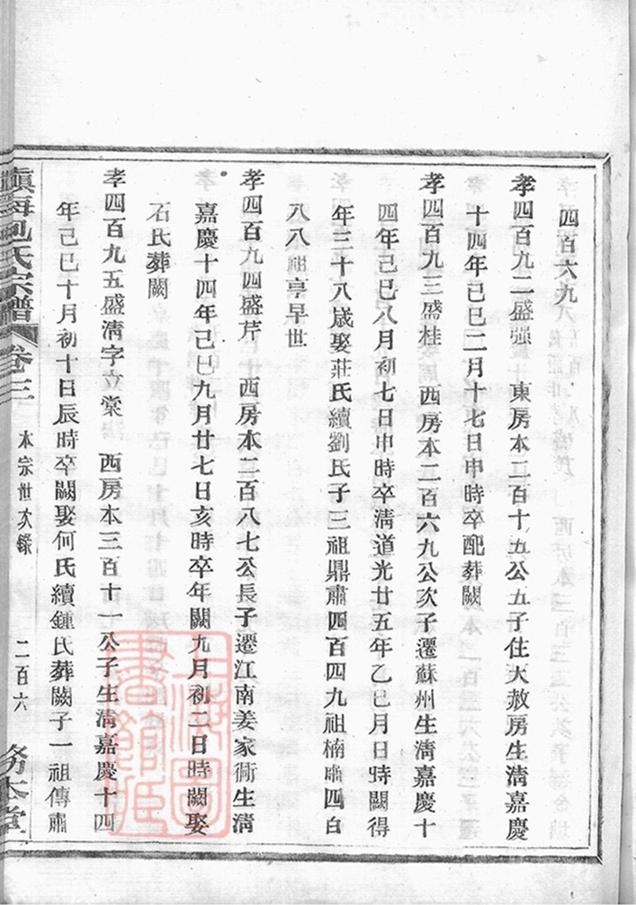 四百六九
孝四百九二盛强 東房本二百十五公五子住大赦房生清嘉慶
十四年己巳二月十七日申時卒配葬闕
孝四百九三盛桂 西房本二百六九公次子遷蘇州生清嘉慶十
四年己巳八月初七日申時卒清道光廿五年乙巳月日時闕得
年三十八歲娶莊氏續劉氏子三祖鼎肅四百四九祖楠肅四百
八八祖亭早世
孝四百九四盛芹 西房本二百八七公長子遷江南姜家衖生清
嘉慶十四年己巳九月廿七日亥時卒年闕九月初二日時闕娶
石氏葬闕
孝四百九五盛清字立棠 西房本三百十一公子生清嘉慶十四
年己巳十月初十日辰時卒闕娶何氏續鍾氏葬闕子一祖傳肅
鎮海包氏宗譜 卷三 本宗世次錄 二百六 務本堂